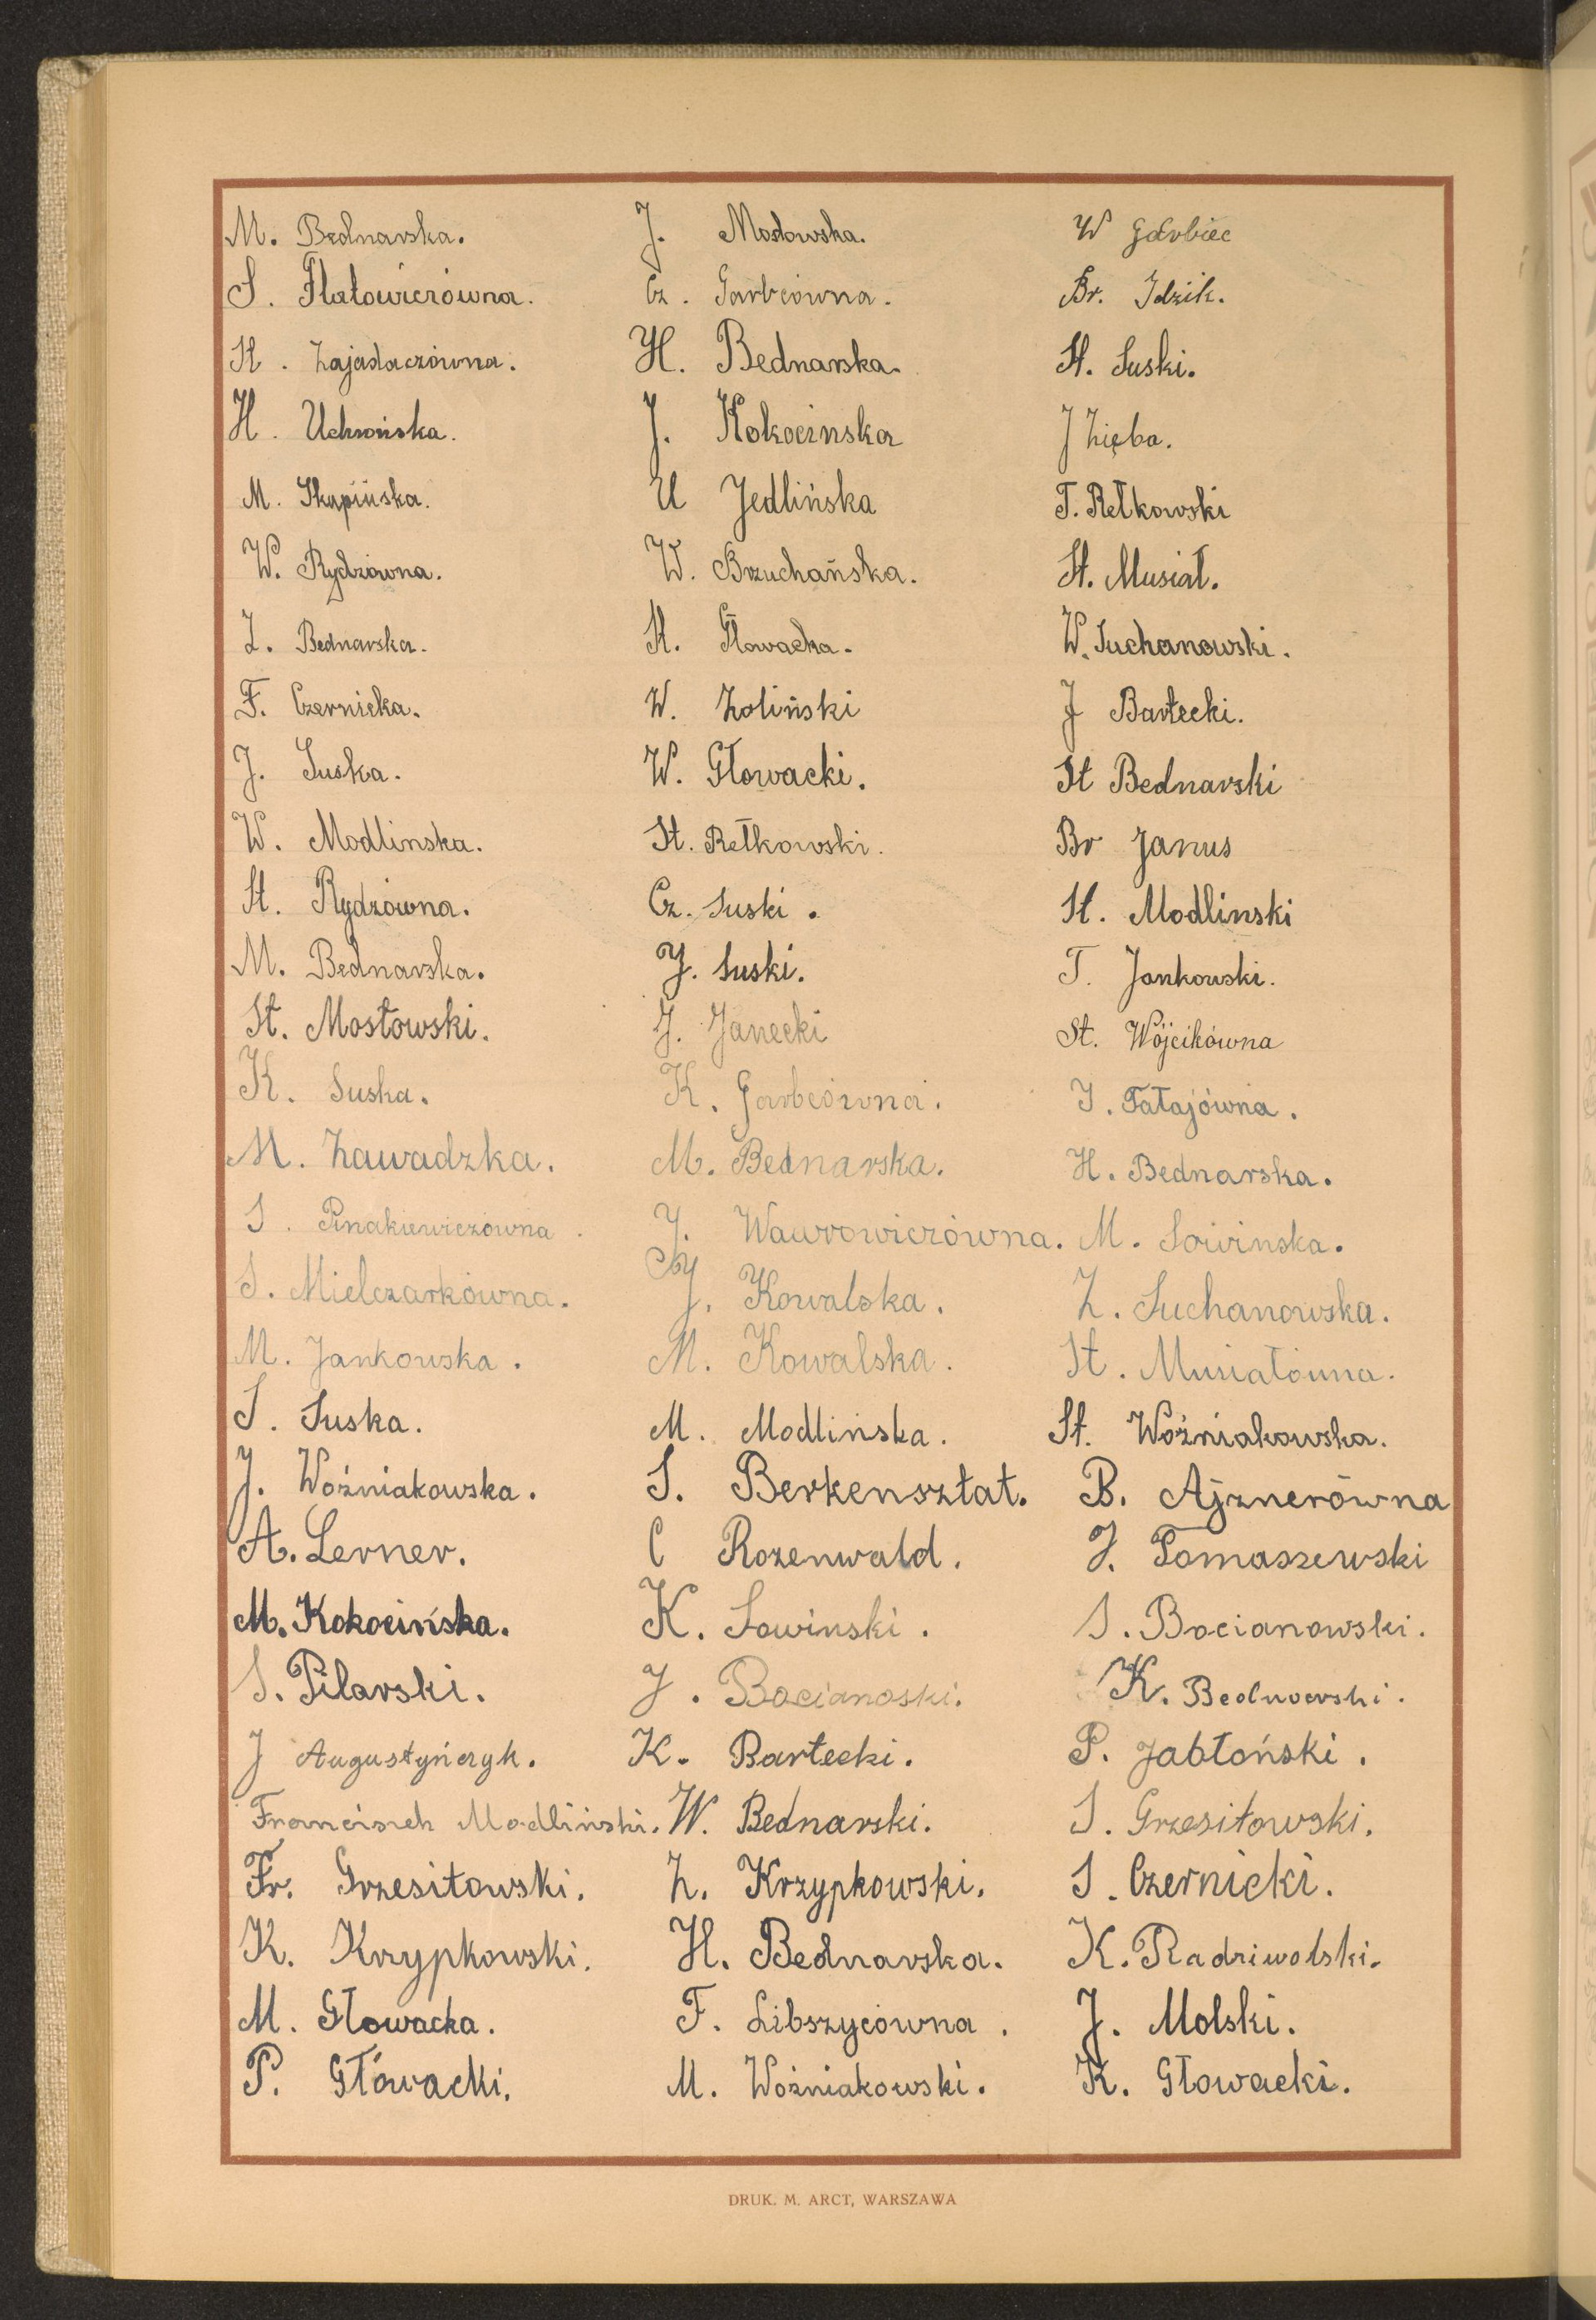 M. Bednarska. J. Mosłowska. W Garbiec
S. Flatowiczówna. Cz. Garbcówna. Br. Idzik.
St. Zajadaczówna. H. Bednarska. St. Suski.
H. Uchrońska. J. Kokocinska J Zięba.
M. Skupińska. U Jedlińska T. Retkowski
W. Rydzówna. W. Brzuchańska. St. Musiał.
Z. Bednarska. K. Głowacka. W. Suchanowski.
F. Czernicka. W. Zoliński J Bartecki.
J. Suska. W. Głowacki. St Bednarski
W. Modlinska. St. Retkowski. Br Janus
St. Rydzówna. Cz. Suski. St. Modlinski
M. Bednarska. J. Suski. T. Jankowski.
St. Mostowski. J. Janecki St. Wójcikówna
K. Suska. K. Garbcówna. J. Fatajówna.
M. Zawadzka. M. Bednarska. H. Bednarska.
S. Pinakiewiczówna. J. Wawrowiczówna. M. Sowinska.
S. Mielczarkówna. J. Kowalska. Z. Suchanowska.
M. Jankowska. M. Kowalska. St. Musiałówna.
S. Suska. M. Modlińska. St. Woźniakowska.
J. Woźniakowska. S. Berkensztat. B. Ajznerówna
A. Lerner. C Rozenwald. J. Tomaszewski
M. Kokocińska. K. Sowinski. S. Bocianowski.
S. Pilarski. J. Bocianoski. K. Bednarski.
J Augustyńczyk. K. Bartecki. P. Jabłoński.
Franciszek Modliński. W. Bednarski. S. Grzesitowski.
Fr. Grzesitowski. Z. Krzypkowski. S. Czernicki.
K. Krzypkowski. H. Bednarska. K. Radziwolski.
M. Głowacka. F. Libszycówna. J. Molski.
P. Głowacki. M. Woźniakowski. K. Głowacki.
DRUK. M. ARCT, WARSZAWA